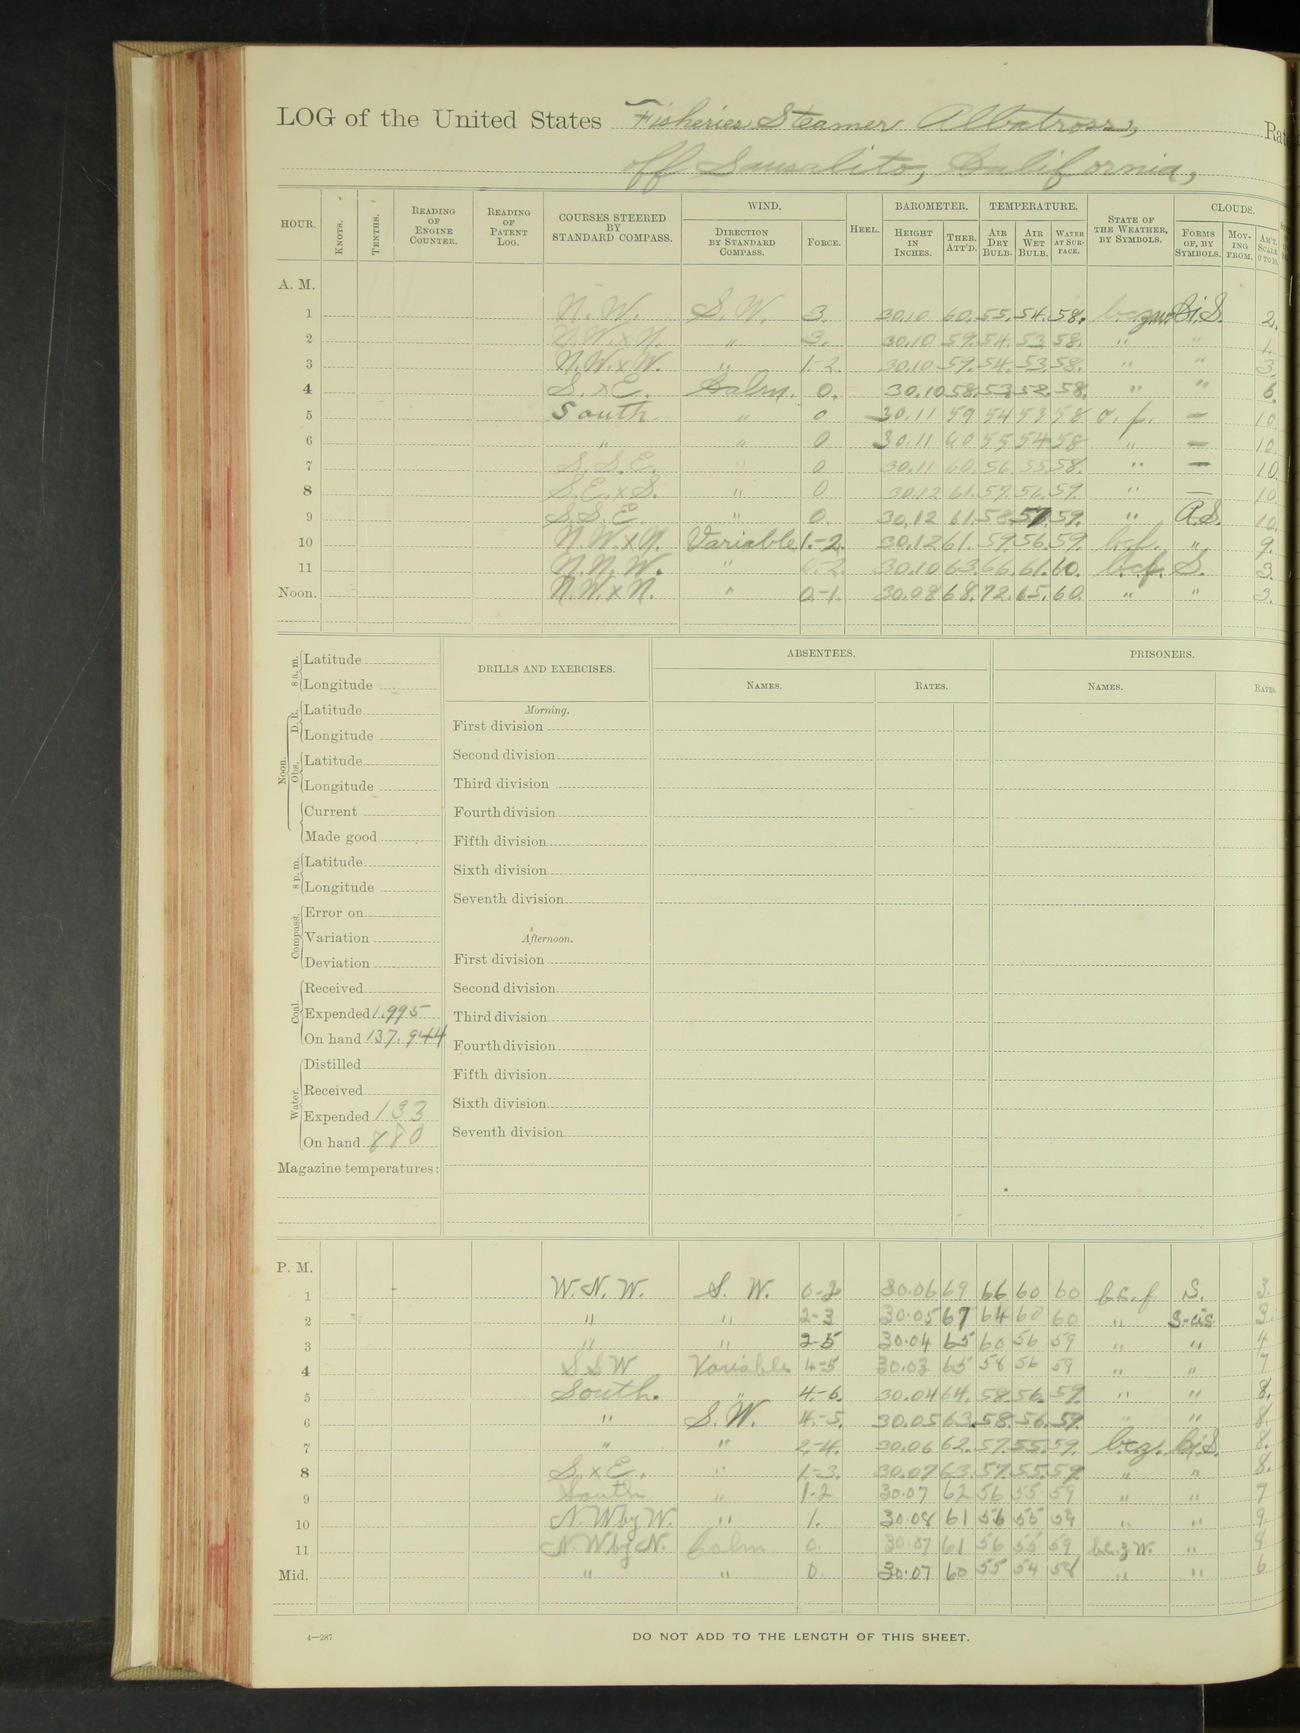 LOG of the United States Fisheries Steamer Albatross, Rat
off Sausalito, California,
HOUR. KNOTS. TENTHS. READING OF ENGINE COUNTER. READING OF PATENT LOG. COURSES STEERED BY STANDARD COMPASS. WIND. DIRECTION BY STANDARD COMPASS. FORCE. HEEL. BAROMETER. HEIGHT IN INCHES. THER. ATT'D. TEMPERATURE. AIR DRY BULB. AIR WET BULB. WATER AT SURFACE. STATE OF THE WEATHER, BY SYMBOLS. CLOUDS. FORMS OF, BY SYMBOLS. MOVING FROM. AM'T. SCALE 0 TO 10.
A. M.
1 N.W. S.W. 3. 30.10 60. 55. 54. 58. bczw. Ci.S. 2.
2 N.W.xN. " 3. 30.10 59. 54. 53 58. " " 1.
3 N.W.xW. " 1-2. 30.10 59. 54. 53. 58. " " 3.
4 S.xE. Calm. 0. 30.10 58. 53. 52. 58. " " 6.
5 South. " 0 30.11 59 54 53 58 o.f. — 10.
6 " " 0 30.11 60 55 54 58 " — 10.
7 S.S.E. " 0 30.11 60. 56. 55. 58. " — 10.
8 S.E.xS. " 0 30.12 61. 57. 56. 59. " — 10
9 S.S.E. " 0. 30.12 61. 58. 57. 59. " A.S. 10.
10 N.W.xN. Variable 1.-2. 30.12 61. 59. 56. 59. bcf. " 9.
11 N.N.W. " 0-2. 30.10 63. 66. 61. 60. bcf. S. 3.
Noon. N.W.xN. " 0-1. 30.08 68. 72. 65. 60. " " 3.
8 a.m. Latitude
Longitude
Noon. D. R. Latitude
Longitude
Obs. Latitude
Longitude
Current
Made good
8 p.m. Latitude
Longitude
Compass. Error on
Variation
Deviation
Coal. Received
Expended 1.995
On hand 137.944
Water. Distilled
Received
Expended 133
On hand 880
Magazine temperatures:
DRILLS AND EXERCISES.
Morning.
First division
Second division
Third division
Fourth division
Fifth division
Sixth division
Seventh division
Afternoon.
First division
Second division
Third division
Fourth division
Fifth division
Sixth division
Seventh division
ABSENTEES.
NAMES. RATES.
PRISONERS.
NAMES. RATES.
P. M.
1 W.N.W. S.W. 0-2 30.06 69 66 60 60 bc.f S. 3.
2 " " 2-3 30.05 67 64 60 60 " S-cis 3.
3 " " 2-5 30.04 65 60 56 59 " " 4
4 SSW Variable 4-5 30.03 65 58 56 59 " " 7
5 South. " 4-6. 30.04 64. 58. 56. 59. " " 8.
6 " S.W. 4-5. 30.05 63. 58. 56. 59. " " 8.
7 " " 2-4. 30.06 62. 57. 55. 59. bcz. Ci.S. 8.
8 S.xE. " 1-3. 30.07 63. 57. 55. 59. " " 8.
9 South " 1-2 30.07 62 56 55 59 " " 7
10 N.W by W. " 1. 30.08 61 56 55 59 " " 9
11 N.W by N. Calm 0. 30.07 61 56 55 59 b.c.z w. " 9
Mid. " " 0. 30.07 60 55 54 58 " " 6
4—287
DO NOT ADD TO THE LENGTH OF THIS SHEET.